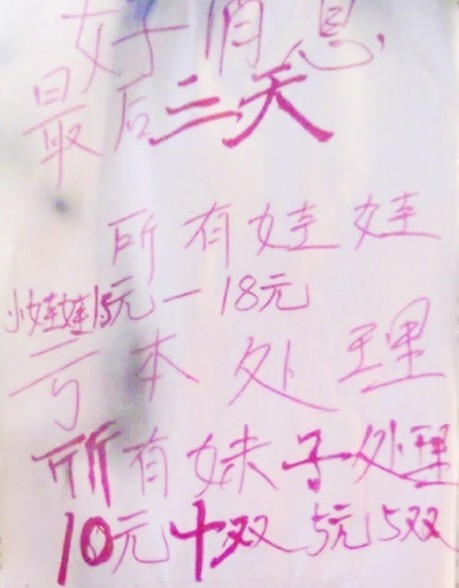 好消息
最后三天
所有娃娃
小娃娃15元一18元
亏本处理
所有妹子处理
10元十双 5元5双